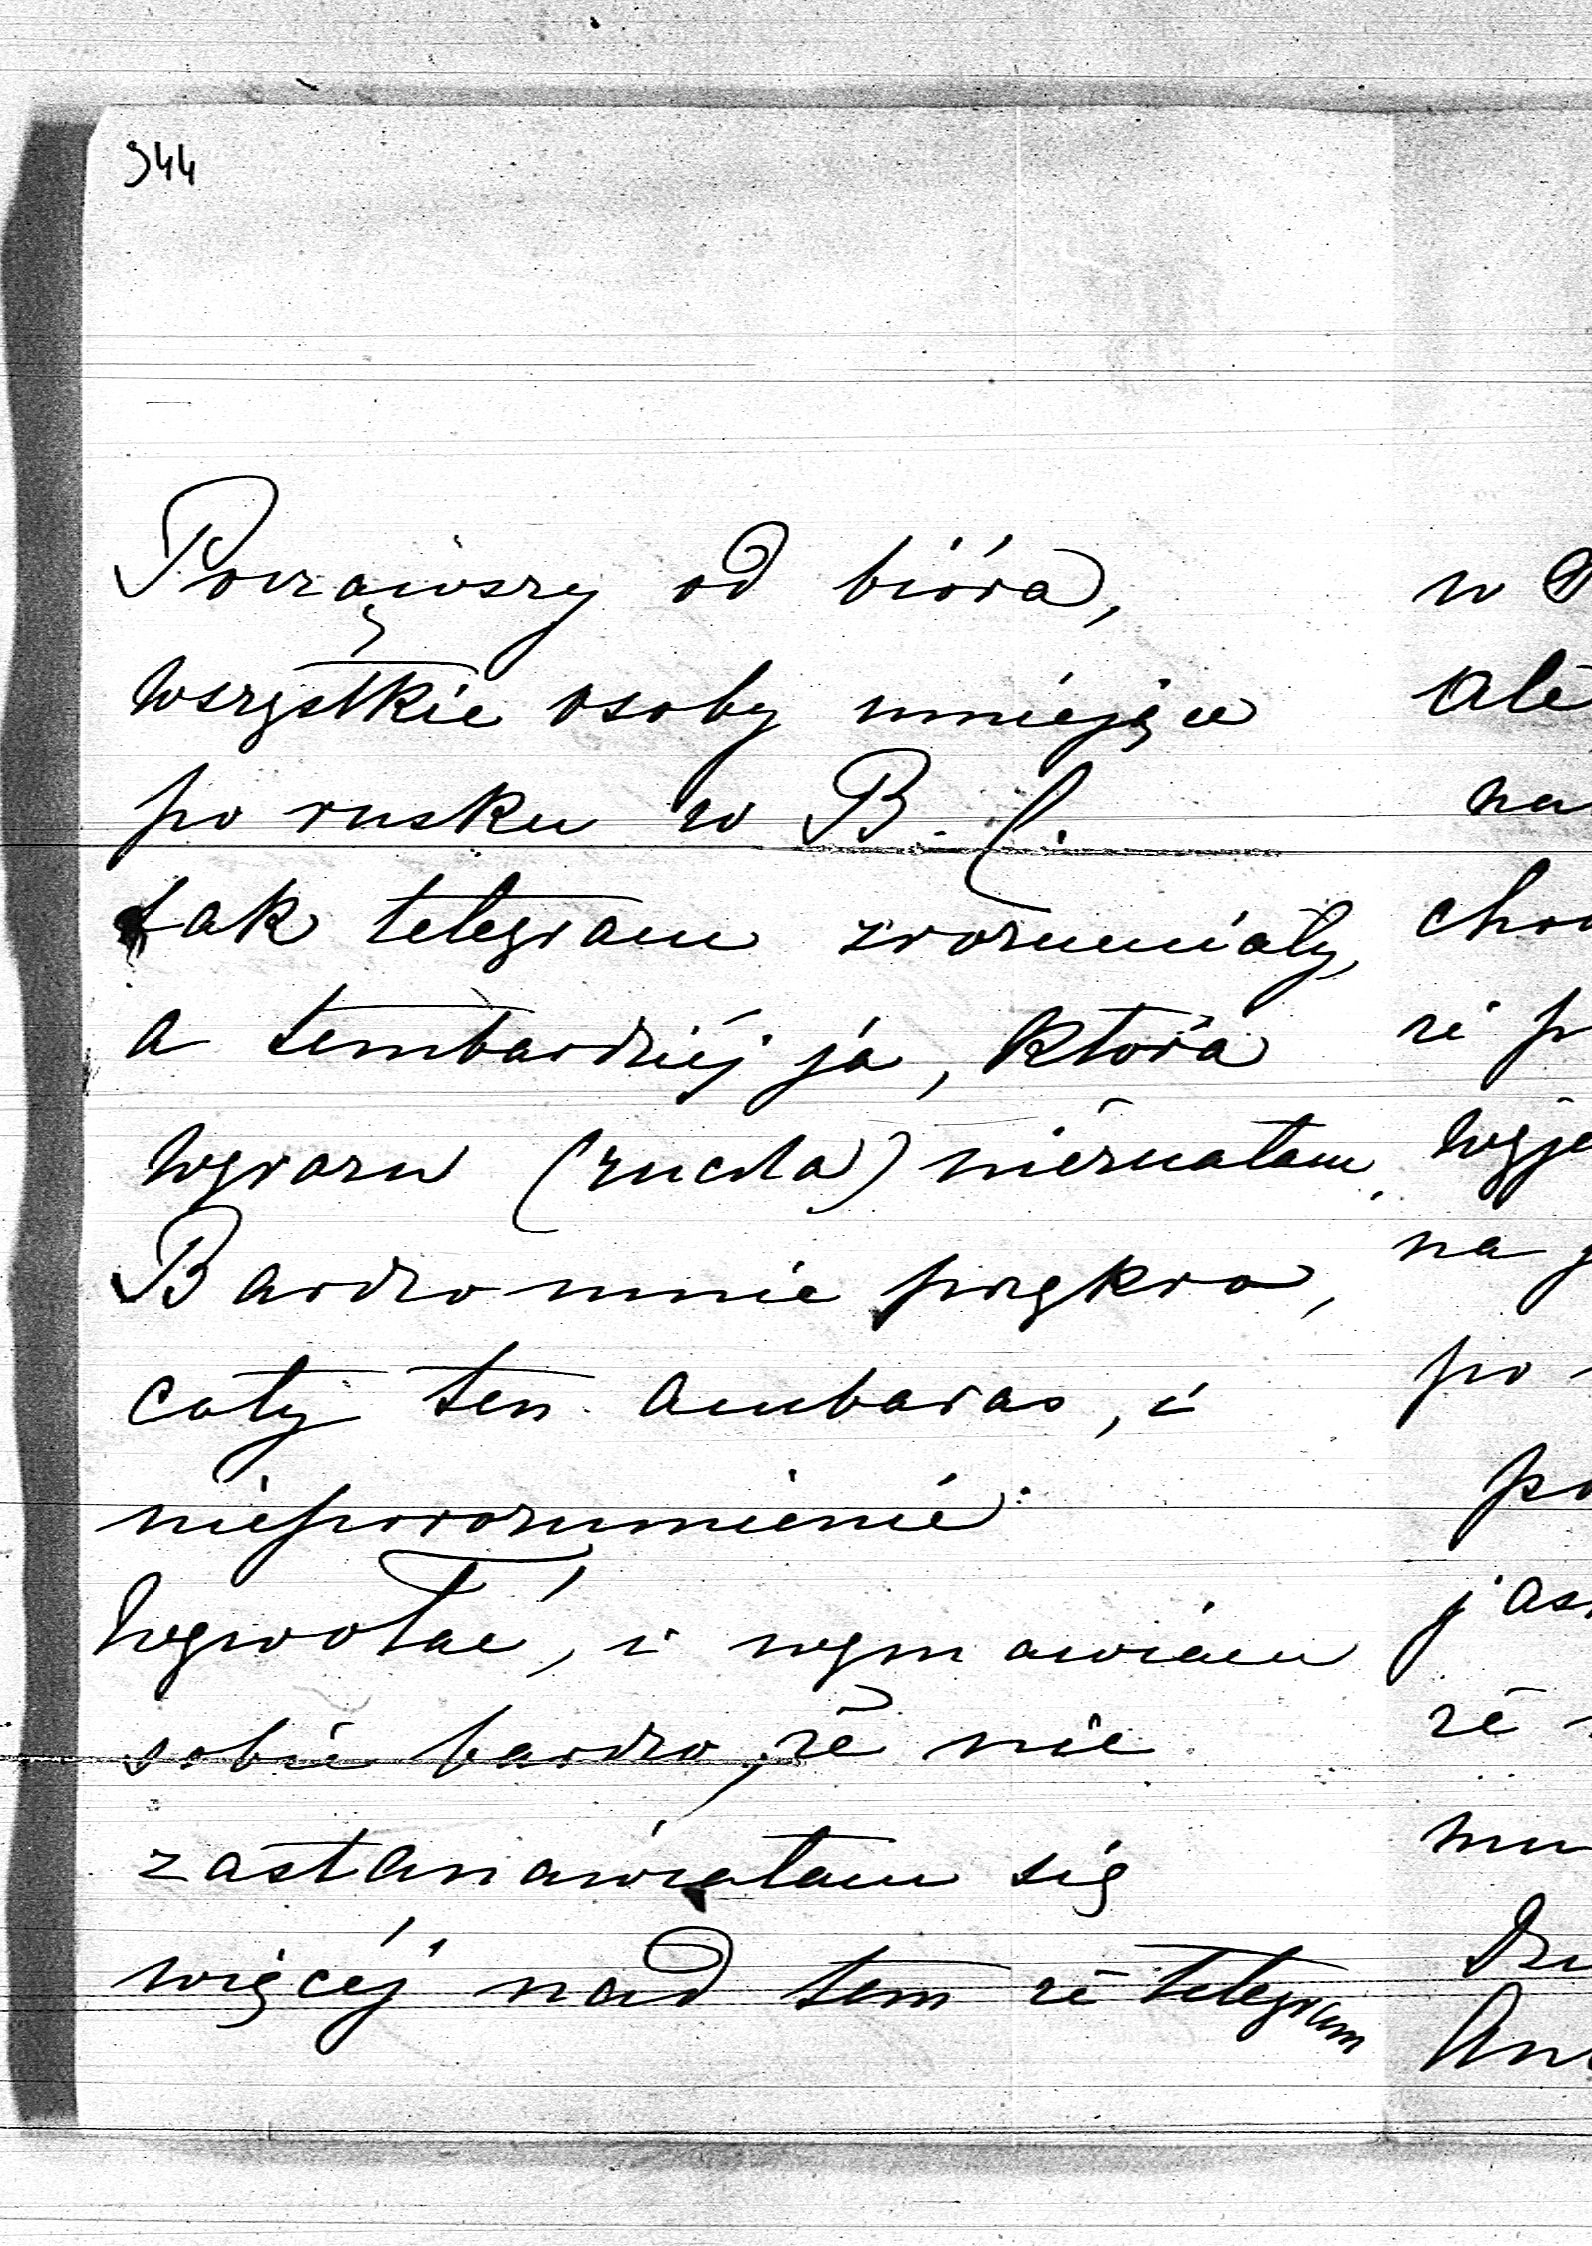 944
Począwszy od bióra,
wszystkie osoby umiejące
po rusku w B. C.
tak telegram zrozumiały,
a tembardziéj ja, która
wyrazu (zucda) nieznałam.
Bardzo mnie przykro,
cały ten ambaras, i
nieporozumienie
wywołać, i wymawiam
sobie bardzo, że nie
zastanawiałam się
więcéj nad tem że telegram